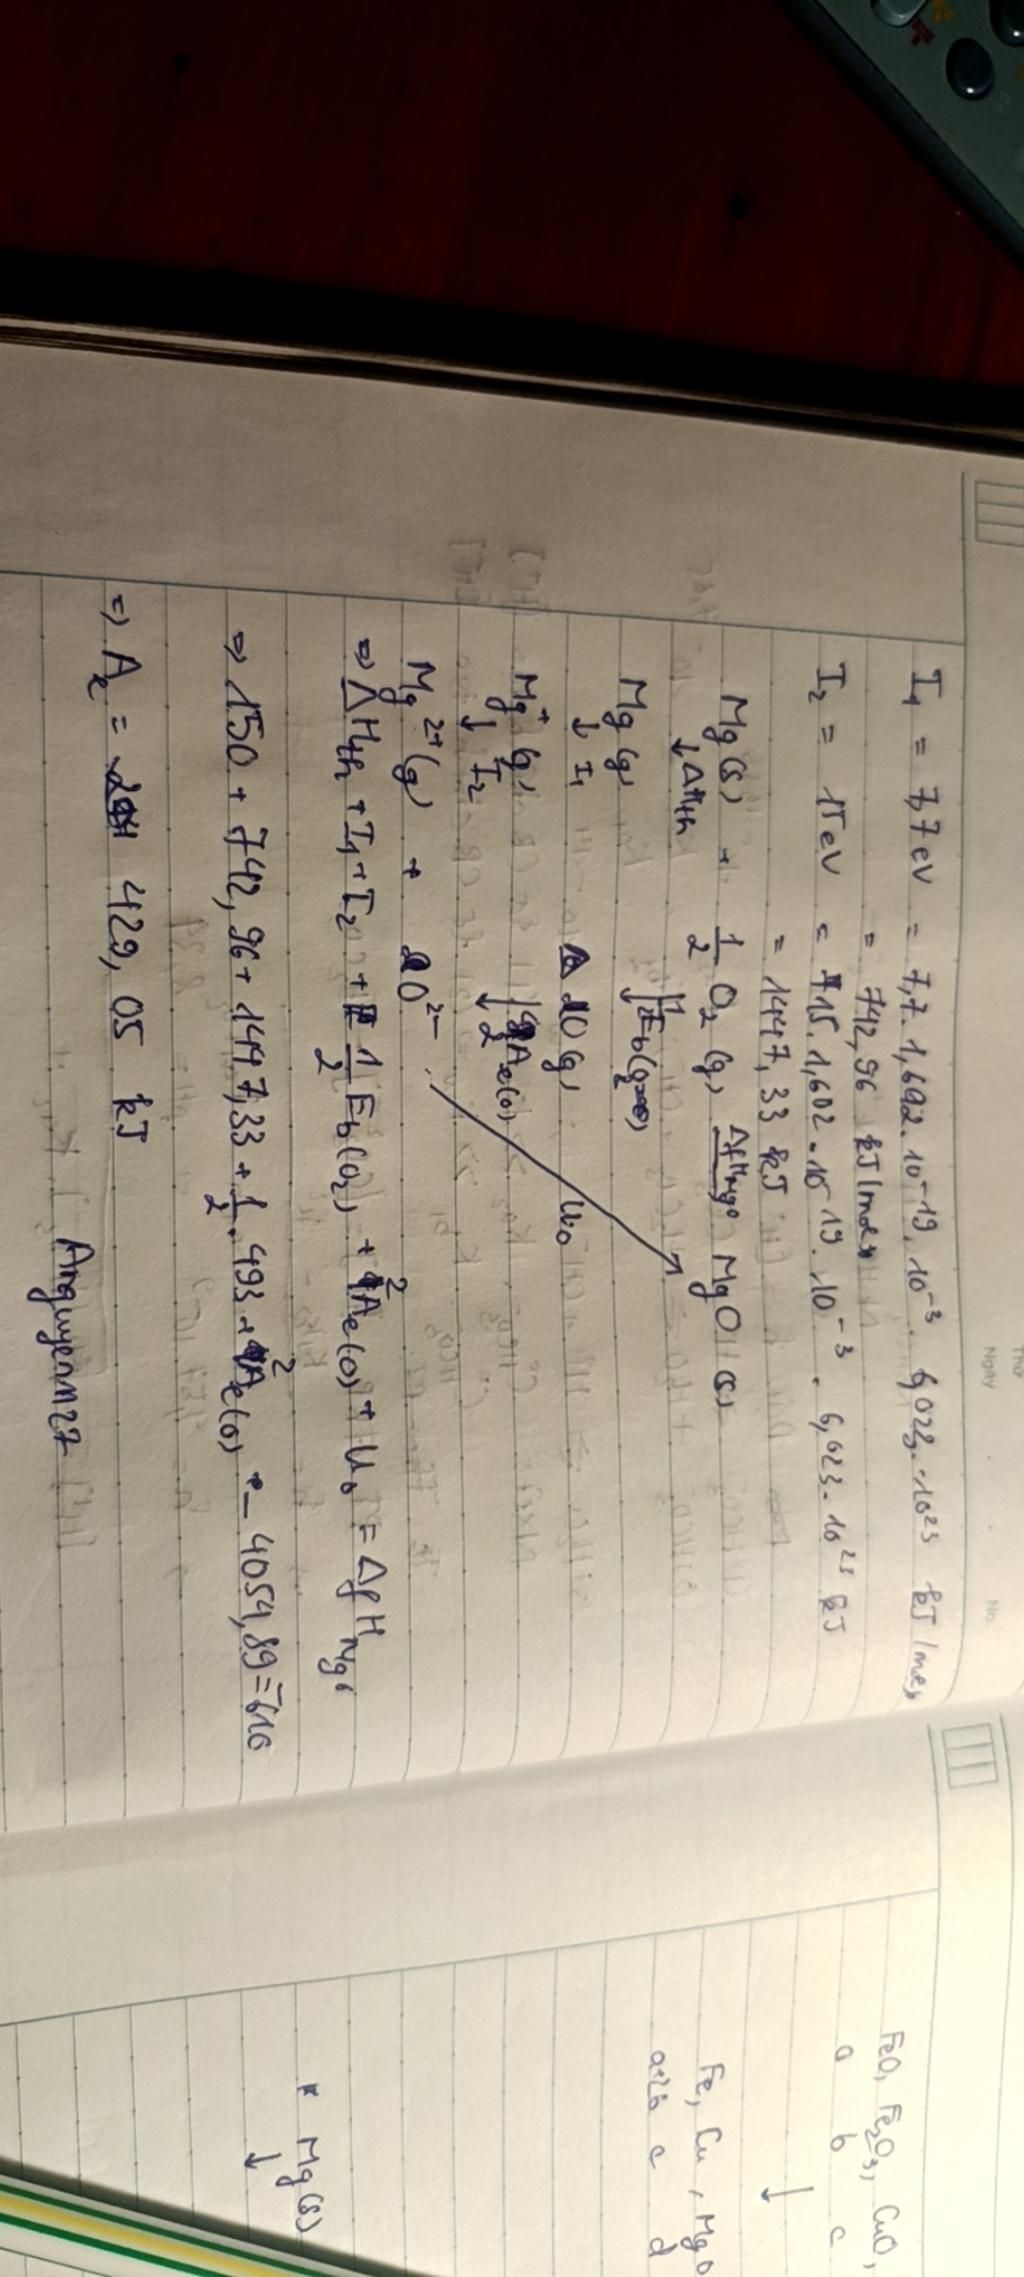 Thứ
Ngày
No.
I₁ = 7,7 eV = 7,7. 1,602. 10⁻¹⁹. 10⁻³. 6,023. 10²³ kJ/mol
= 742,96 kJ/mol
I₂ = 15 eV = 15. 1,602. 10⁻¹⁹. 10⁻³. 6,023. 10²³ kJ
= 1447,33 kJ
Mg(s) + 1/2 O₂(g) ΔfH MgO MgO(s)
↓ ΔHth ↓ 1/2 Eb(O₂)
Mg(g)
↓ I₁ O(g) U₀
Mg⁺(g)
↓ I₂ ↓ 2Ae(O)
Mg²⁺(g) + O²⁻
⇒ ΔHth + I₁ + I₂ + 1/2 Eb(O₂) + 2Ae(O) + U₀ = ΔfH MgO
⇒ 150 + 742,96 + 1447,33 + 1/2. 493 + 2Ae(O) - 4054,89 = -610
⇒ Ae = 429,05 kJ
Anguyenn27
FeO, Fe₂O₃, CuO,
a b c
↓
Fe, Cu, MgO
a+2b c d
* Mg(s)
↓